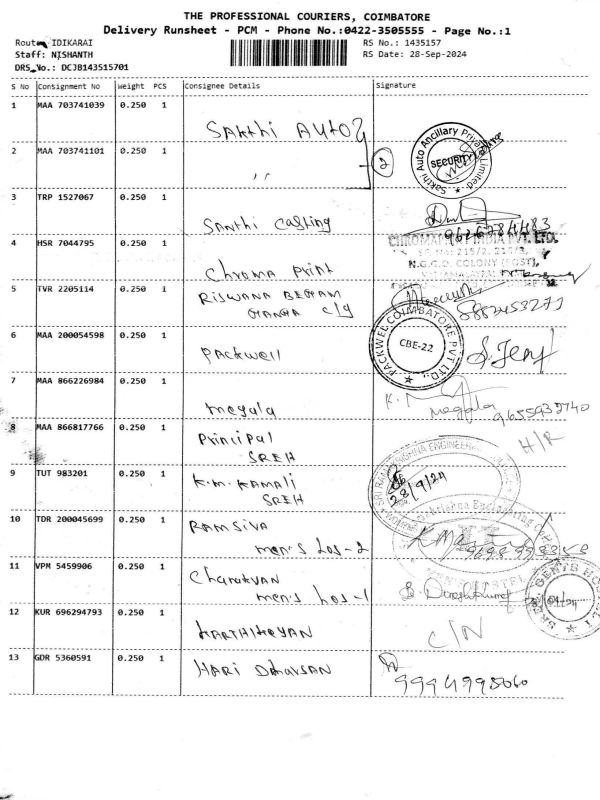 THE PROFESSIONAL COURIERS, COIMBATORE
Delivery Runsheet - PCM - Phone No.:0422-3505555 - Page No.:1
Route IDIKARAI
Staff: NISHANTH
DRS No.: DCJB143515701
RS No.: 1435157
RS Date: 28-Sep-2024
S No Consignment No Weight PCS Consignee Details Signature
1 MAA 703741039 0.250 1 Sakthi Auto
2 MAA 703741101 0.250 1 ,, 2
Sakthi Auto Ancillary Private Limited
SECURITY
3 TRP 1527067 0.250 1 Santhi Casting
4 HSR 7044795 0.250 1 Chroma Print
CHROMAPRINT INDIA PVT. LTD.
N.G.G.O. COLONY (POST),
5 TVR 2205114 0.250 1 RISWANA BEGAM
GANGA
6 MAA 200054598 0.250 1 Packwell
PACKWEL COIMBATORE PVT LTD.,
CBE-22
7 MAA 866226984 0.250 1 megala
Megala 9655932740
8 MAA 866817766 0.250 1 Principal
SREH
H/R
9 TUT 983201 0.250 1 K.M. KAMALI
SREH
28/9/24
10 TDR 200045699 0.250 1 RAMSIVA
men's hos-2
11 VPM 5459906 0.250 1
men's hos-1
12 KUR 696294793 0.250 1 KARTHIKEYAN
C/N
13 GDR 5360591 0.250 1 HARI